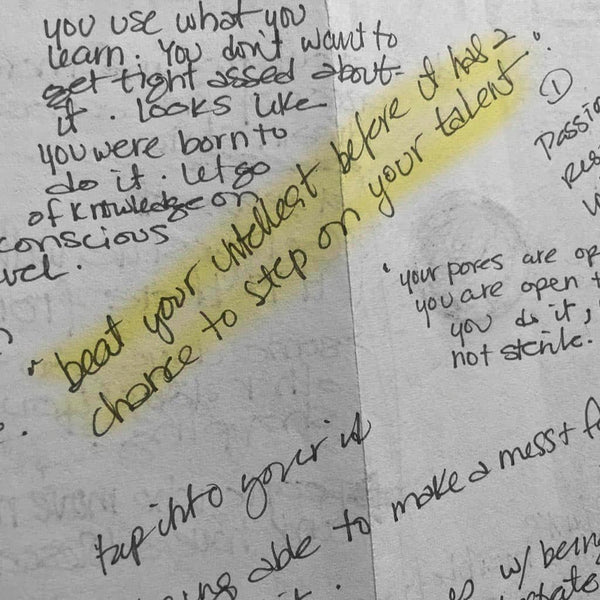 you use what you
learn. You don't want to
get tight assed about
it. Looks like
you were born to
do it. Let go
of knowledge on
conscious
"beat your intellect before it has a
chance to step on your talent."
①
your pores are
you are open
you do it,
not sterile.
tap into your id
able to make a mess +
w/ being